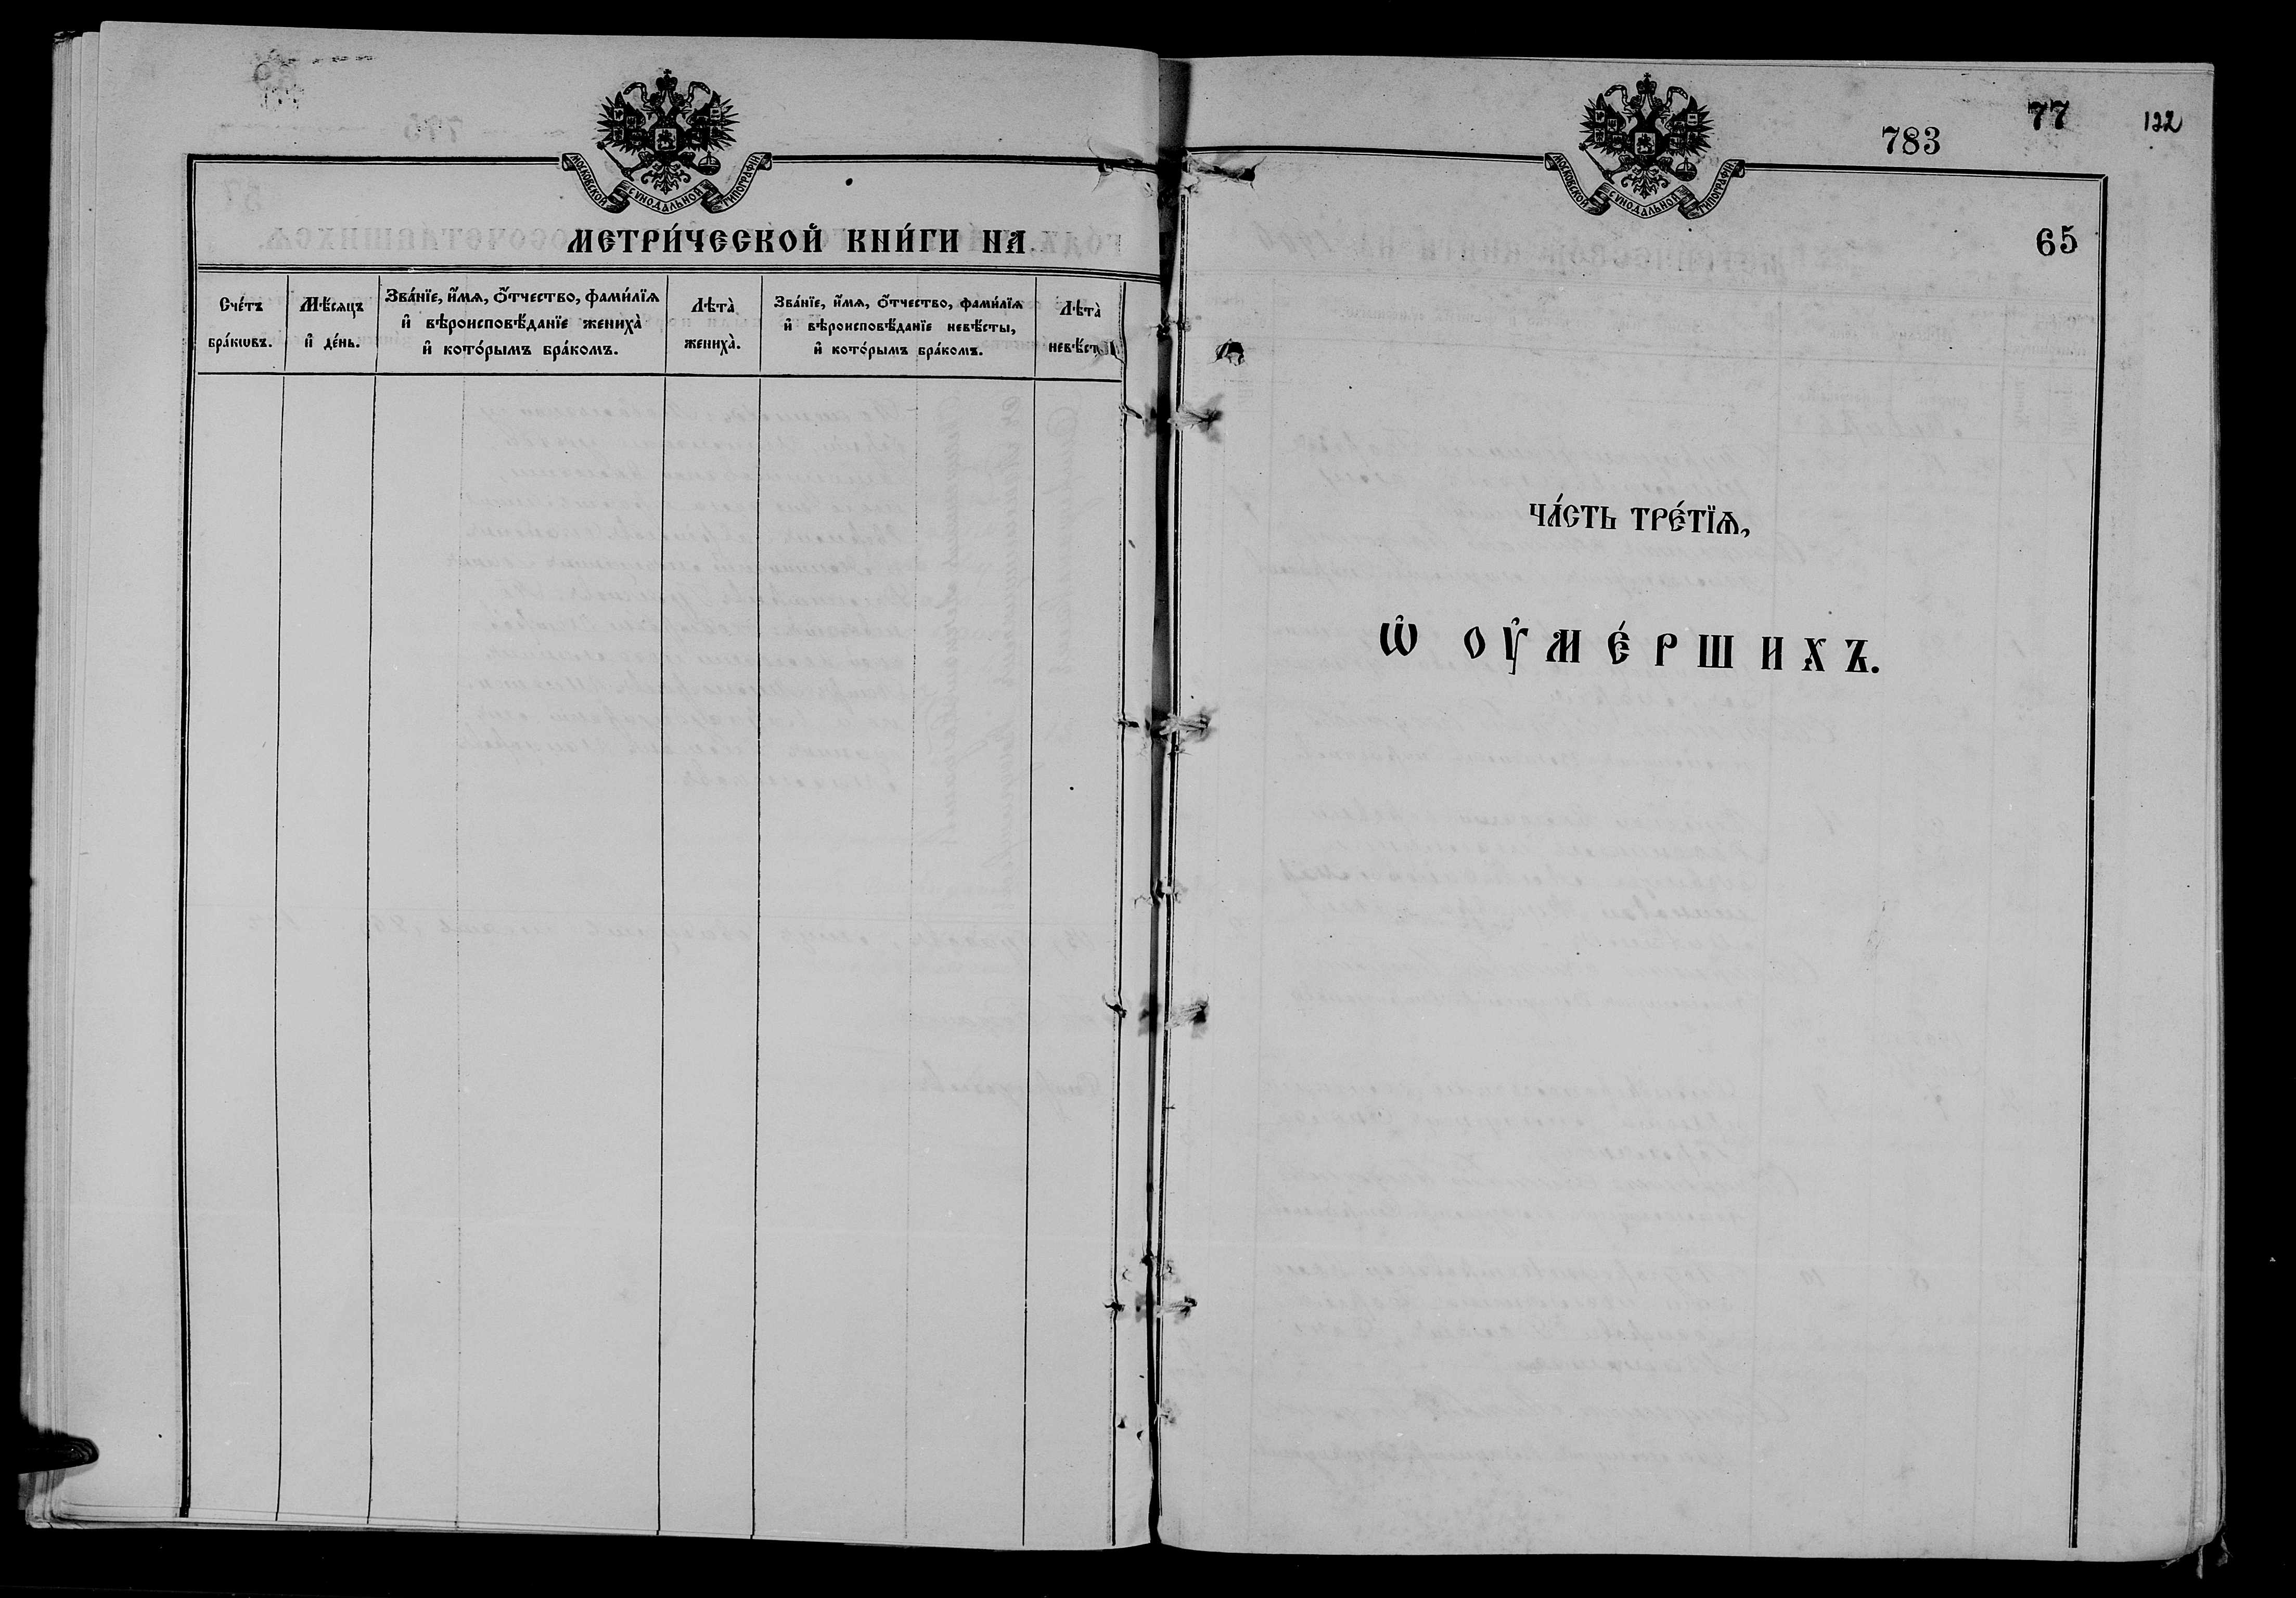 МОСКОВСКОЙ СѴНОДАЛЬНОЙ ТИПОГРАФІИ
МЕТРИ́ЧЕСКОЙ КНИ́ГИ НА
Сче́тъ
бра́кѡвъ.
Мѣ́сяцъ
и҆ де́нь.
Зва́нїе, и҆́мѧ, ѻ҆́тчество, фами́лїѧ
и҆ вѣроисповѣ́данїе жениха̀
и҆ кото́рымъ бра́комъ.
Лѣта̀
жениха̀.
Зва́нїе, и҆́мѧ, ѻ҆́тчество, фами́лїѧ
и҆ вѣроисповѣ́данїе невѣ́сты,
и҆ кото́рымъ бра́комъ.
Лѣта̀
невѣ́ст
МОСКОВСКОЙ СѴНОДАЛЬНОЙ ТИПОГРАФІИ
783
77
122
65
ЧА́СТЬ ТРЕ́ТЇѦ,
Ѡ҆ ОУ҆МЕ́РШИХЪ.